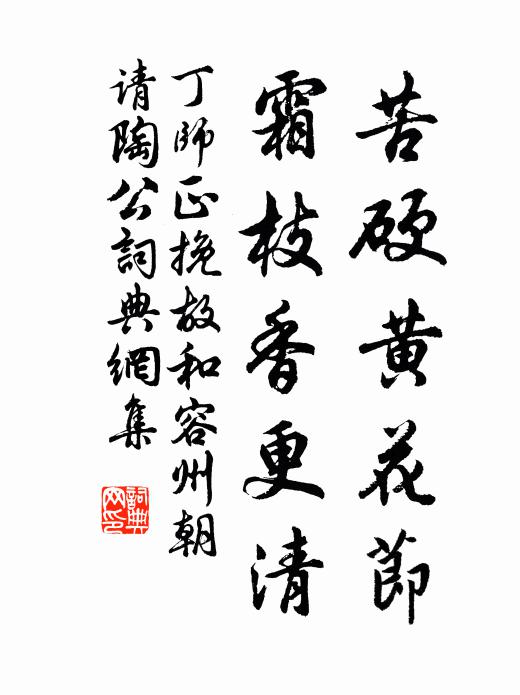 苦硬黄花節
霜枝香更清
丁師正挽故和容州朝
请陶公詞典網集
詞典
网印